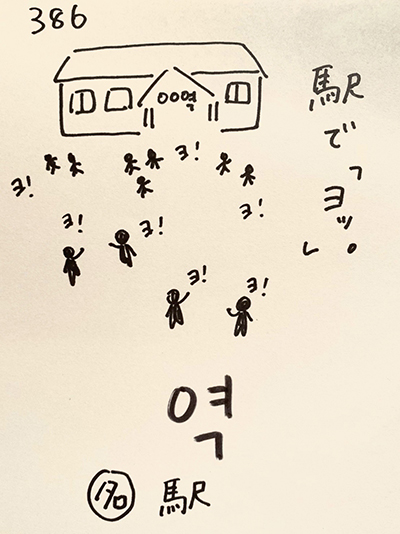 386
○○역
ヨ!
ヨ!
ヨ!
ヨ!
ヨ!
ヨ!
ヨ!
駅で「ヨッ。」
역
名 駅